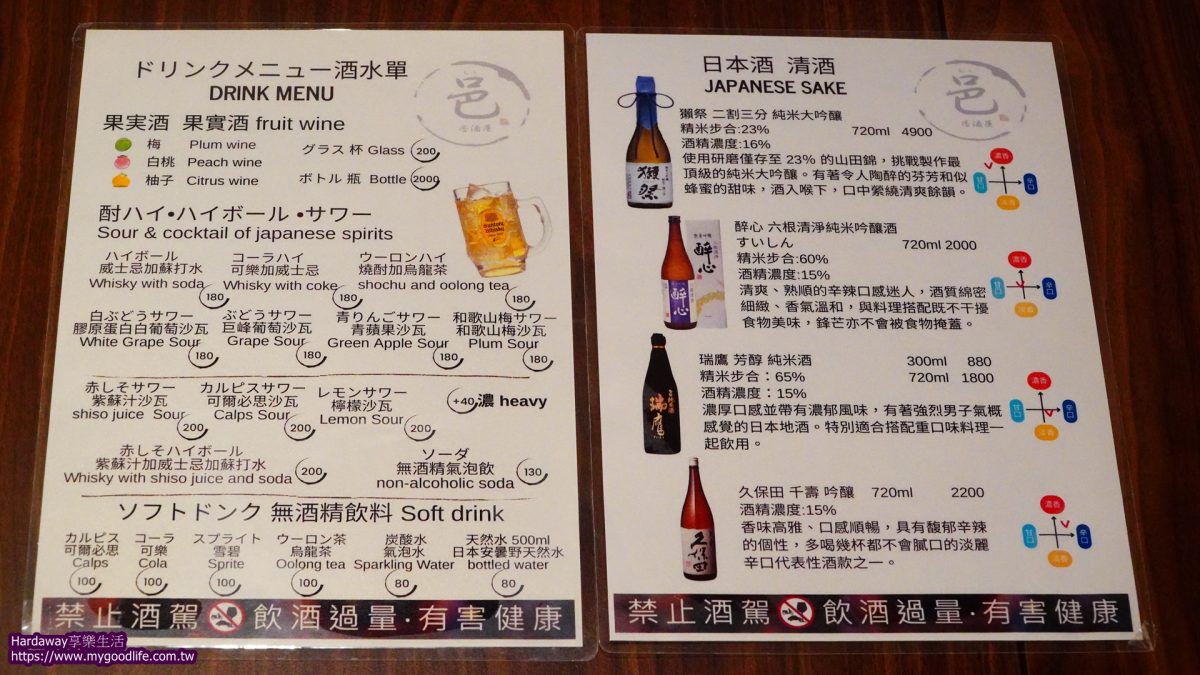 ドリンクメニュー酒水單
DRINK MENU
邑
居酒屋
果実酒 果實酒 fruit wine
梅 Plum wine
白桃 Peach wine
柚子 Citrus wine
グラス 杯 Glass 200
ボトル 瓶 Bottle 2000
酎ハイ•ハイボール •サワー
Sour & cocktail of japanese spirits
ハイボール
威士忌加蘇打水
Whisky with soda
180
コーラハイ
可樂加威士忌
Whisky with coke
180
ウーロンハイ
燒酎加烏龍茶
shochu and oolong tea
180
白ぶどうサワー
膠原蛋白白葡萄沙瓦
White Grape Sour
180
ぶどうサワー
巨峰葡萄沙瓦
Grape Sour
180
青りんごサワー
青蘋果沙瓦
Green Apple Sour
180
和歌山梅サワー
和歌山梅沙瓦
Plum Sour
180
赤しそサワー
紫蘇汁沙瓦
shiso juice Sour
200
カルピスサワー
可爾必思沙瓦
Calps Sour
200
レモンサワー
檸檬沙瓦
Lemon Sour
200
+40 濃 heavy
赤しそハイボール
紫蘇汁加威士忌加蘇打水
Whisky with shiso juice and soda
200
ソーダ
無酒精氣泡飲
non-alcoholic soda
130
ソフトドンク 無酒精飲料 Soft drink
カルピス
可爾必思
Calps
100
コーラ
可樂
Cola
100
スプライト
雪碧
Sprite
100
ウーロン茶
烏龍茶
Oolong tea
100
炭酸水
氣泡水
Sparkling Water
80
天然水 500ml
日本安曇野天然水
bottled water
80
禁止酒駕 飲酒過量·有害健康
日本酒 清酒
JAPANESE SAKE
邑
居酒屋
獺祭
獺祭 二割三分 純米大吟釀
精米步合:23% 720ml 4900
酒精濃度:16%
使用研磨僅存至 23% 的山田錦，挑戰製作最
頂級的純米大吟釀。有著令人陶醉的芬芳和似
蜂蜜的甜味，酒入喉下，口中縈繞清爽餘韻。
濃香
甘口
辛口
淡香
醉心
醉心
醉心 六根清淨純米吟釀酒
すいしん 720ml 2000
精米步合:60%
酒精濃度:15%
清爽、熟順的辛辣口感迷人，酒質綿密
細緻、香氣溫和，與料理搭配既不干擾
食物美味，鋒芒亦不會被食物掩蓋。
濃香
甘口
辛口
淡香
瑞鷹
瑞鷹 芳醇 純米酒 300ml 880
精米步合：65% 720ml 1800
酒精濃度：15%
濃厚口感並帶有濃郁風味，有著強烈男子氣概
感覺的日本地酒。特別適合搭配重口味料理一
起飲用。
濃香
甘口
辛口
淡香
久保田
久保田 千壽 吟釀 720ml 2200
酒精濃度:15%
香味高雅、口感順暢，具有馥郁辛辣
的個性，多喝幾杯都不會膩口的淡麗
辛口代表性酒款之一。
濃香
甘口
辛口
淡香
禁止酒駕 飲酒過量·有害健康
Hardaway享樂生活
https://www.mygoodlife.com.tw